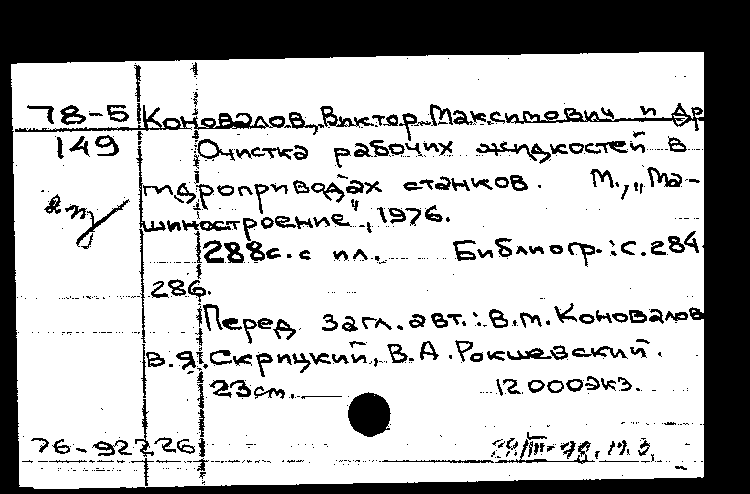 78-5 Коновалов, Виктор Максимович и др
149 Очистка рабочих жидкостей в
гидроприводах станков. М., „Ма-
шиностроение", 1976.
288с. с ил. Библиогр.: с. 284-
286.
Перед загл. авт.: В.М. Коновалов
В.Я. Скрицкий, В.А. Рокшевский.
23см. 12000экз.
76-92226